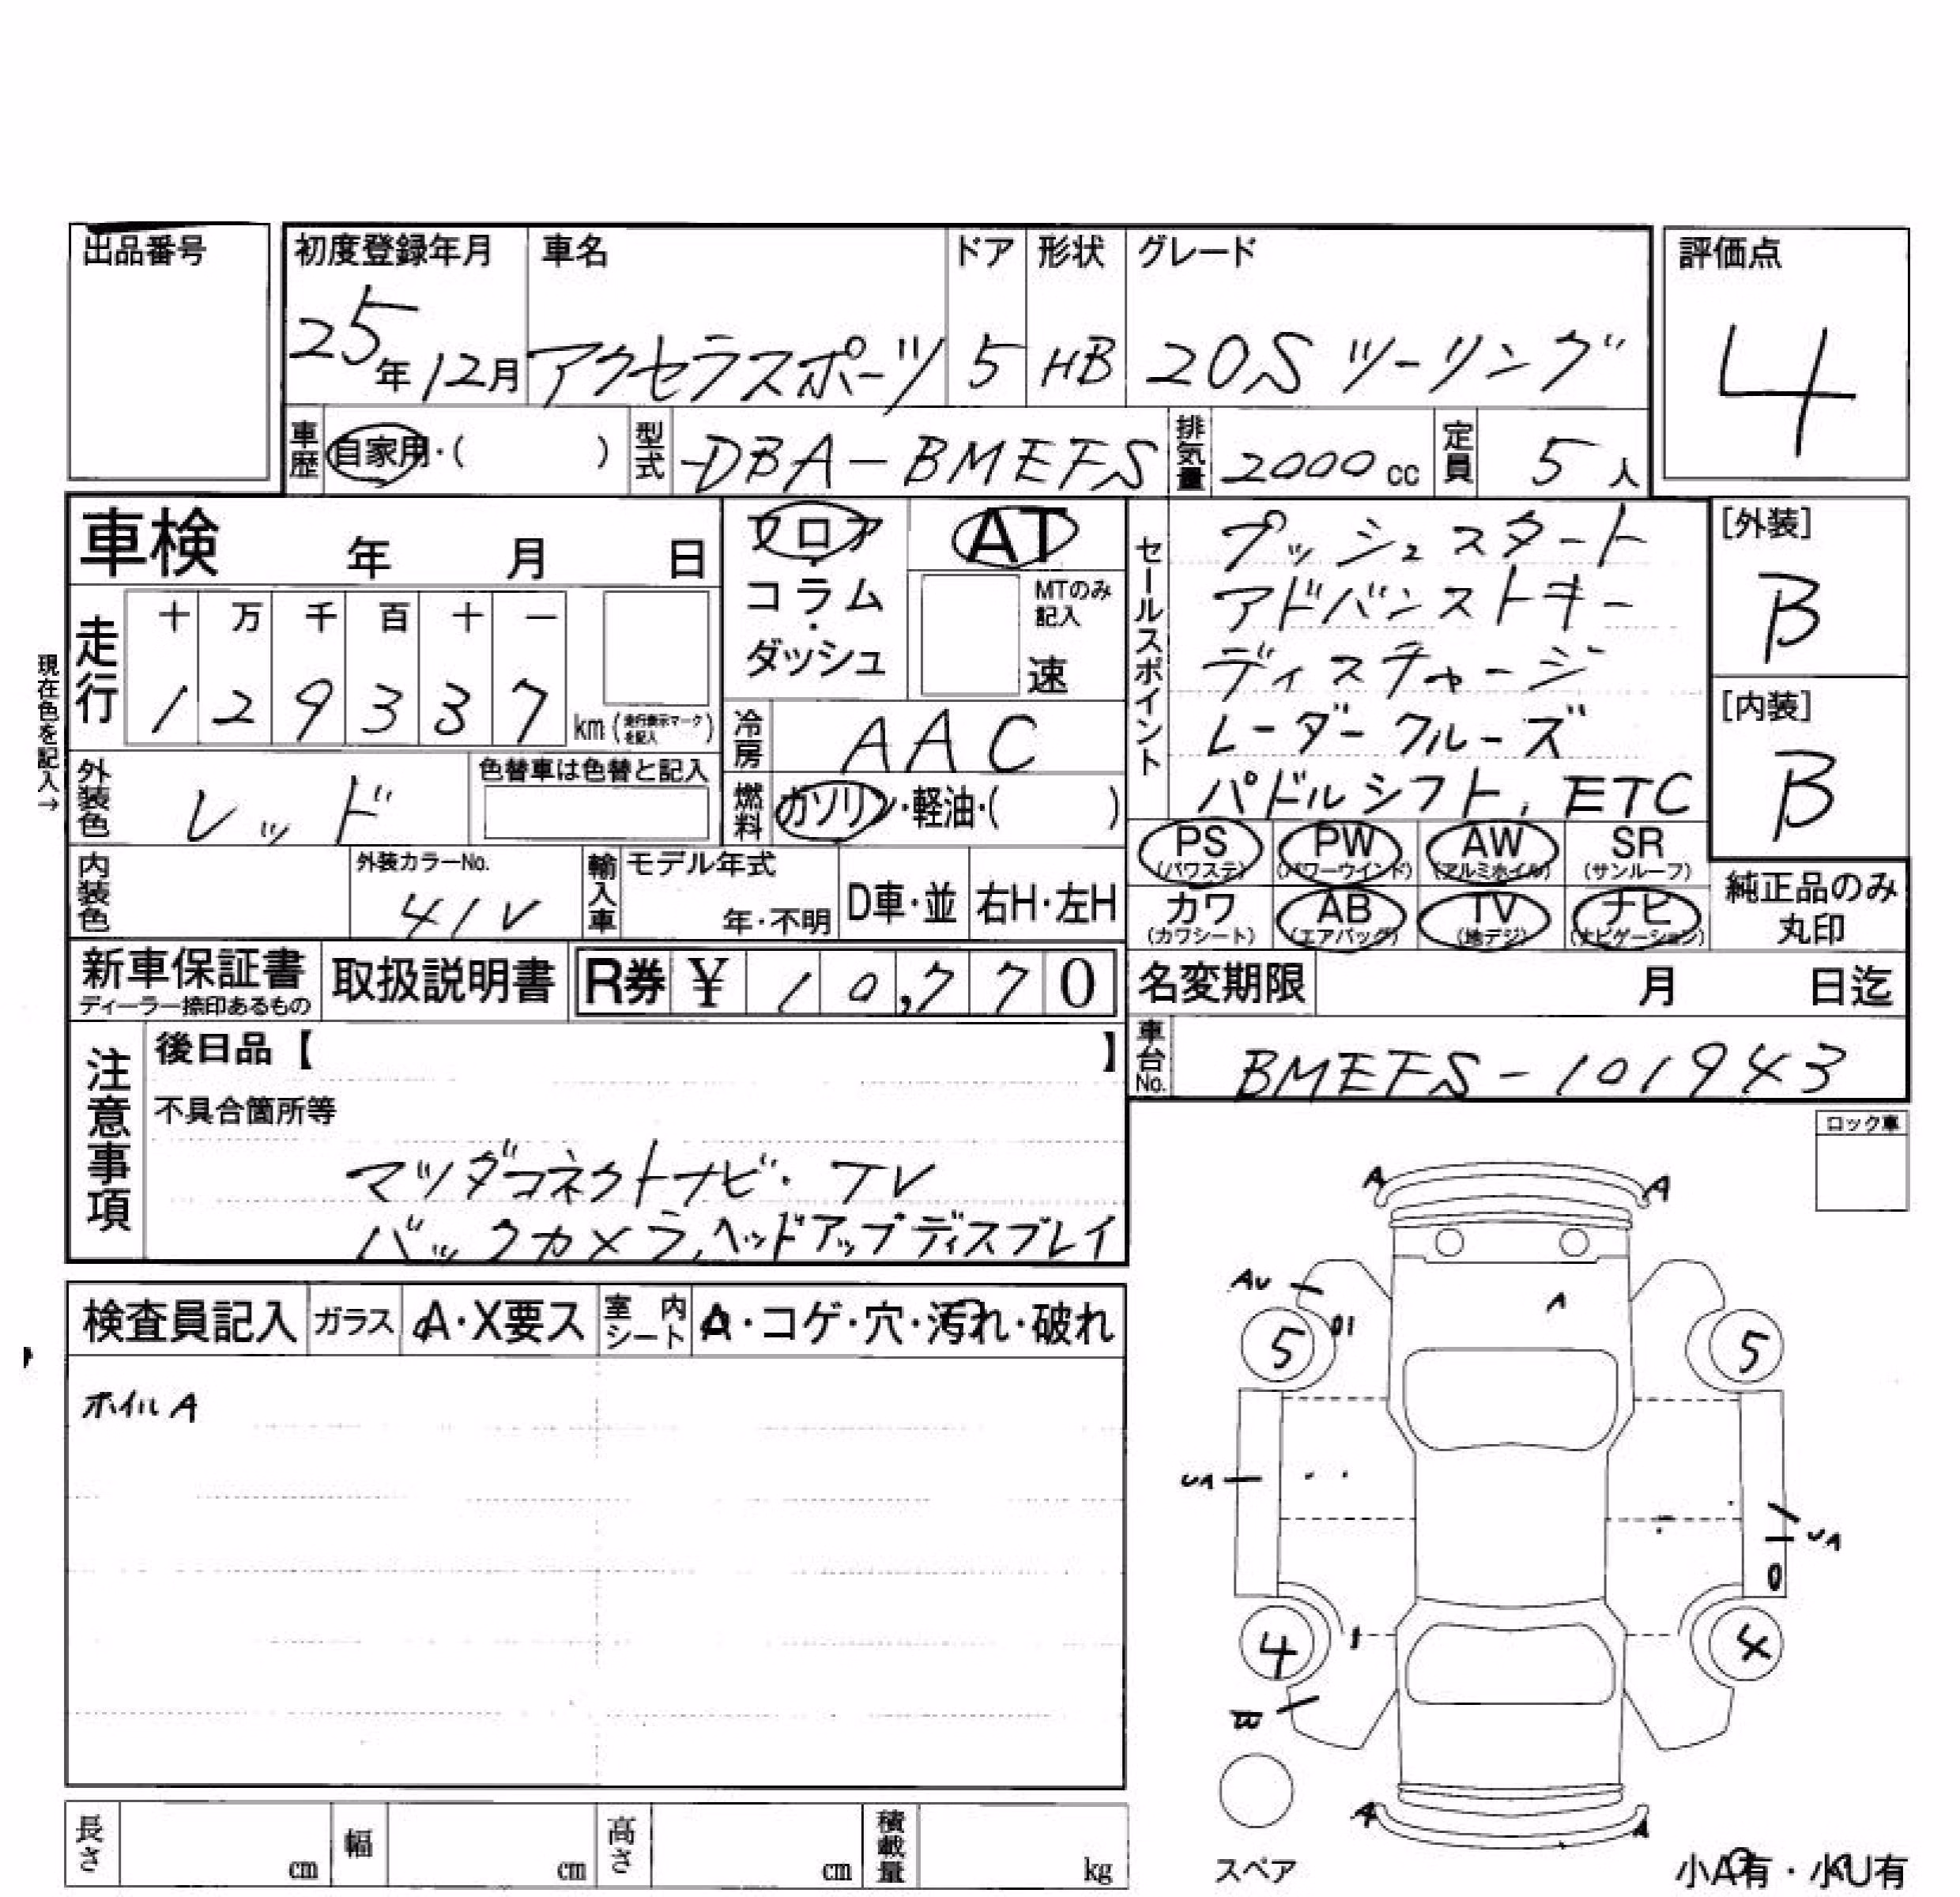 出品番号
初度登録年月 車名 ドア 形状 グレード 評価点
25年12月 アクセラスポーツ 5 HB 20S ツーリング 4
車歴 自家用・( ) 型式 DBA-BMEFS 排気量 2000cc 定員 5人
車検 年 月 日
フロア・コラム・ダッシュ
AT
MTのみ記入
速
走行 十 万 千 百 十 一
1 2 9 3 3 7 km (走行表示マークを記入)
現在色を記入→
冷房 AAC
外装色 レッド 色替車は色替と記入
燃料 ガソリン・軽油・( )
内装色 外装カラーNo. 41V 輸入車 モデル年式 年・不明 D車・並 右H・左H
セールスポイント
プッシュスタート
アドバンストキー
ディスチャージ
レーダークルーズ
パドルシフト, ETC
[外装]
B
[内装]
B
PS (パワステ) PW (パワーウインド) AW (アルミホイル) SR (サンルーフ)
カワ (カワシート) AB (エアバッグ) TV (地デジ) ナビ (ナビゲーション)
純正品のみ丸印
新車保証書 ディーラー捺印あるもの 取扱説明書 R券 ¥ 10,770
名変期限 月 日迄
車台No. BMEFS-101943
注意事項 後日品【 】
不具合箇所等
マツダコネクトナビ・TV
バックカメラ,ヘッドアップディスプレイ
ロック車
検査員記入 ガラス A・X要ス 室内シート A・コゲ・穴・汚れ・破れ
ホイルA
A A
AU A
5 5
UA UA
4 4
A A
スペア
小A有・小U有
長さ cm 幅 cm 高さ cm 積載量 kg